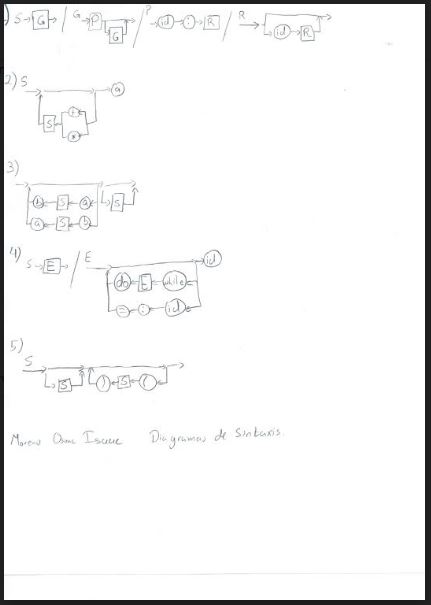 ) S G / G P G / P id : R / R id R
2) S a
S + *
3)
b S a S
a S b
4) S E / E id
do E while
= : id
5) S
S ) S (
Diagramas de Sintaxis.